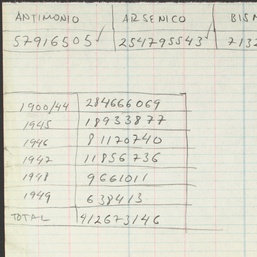 ANTIMONIO ARSENICO
57916505✓ 254795543✓
1900/44 284666069
1945 18933877
1946 81170740
1947 11856736
1948 9661011
1949 638413
TOTAL 412673146